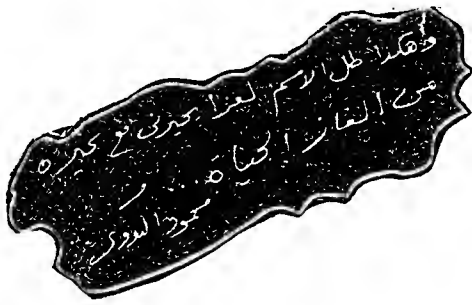 وهكذا ظل الاسم لغزا يحيرنى مع غيره
من ألغاز الحياة ..
محمود البدوى